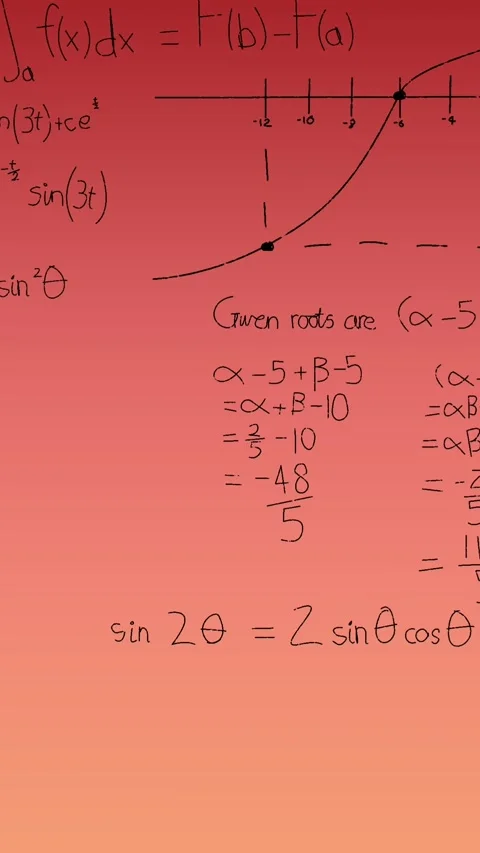 ∫a f(x)dx = F(b)-F(a)
n(3t)+ce^t
-12 -10 -8 -6 -4
-t/2 sin(3t)
sin²θ
Given roots are (α-5
α-5+β-5
=α+β-10
=2/5-10
=-48/5
(α-
=αβ
=αβ
=-2/5
=11
sin 2θ = 2 sinθcosθ